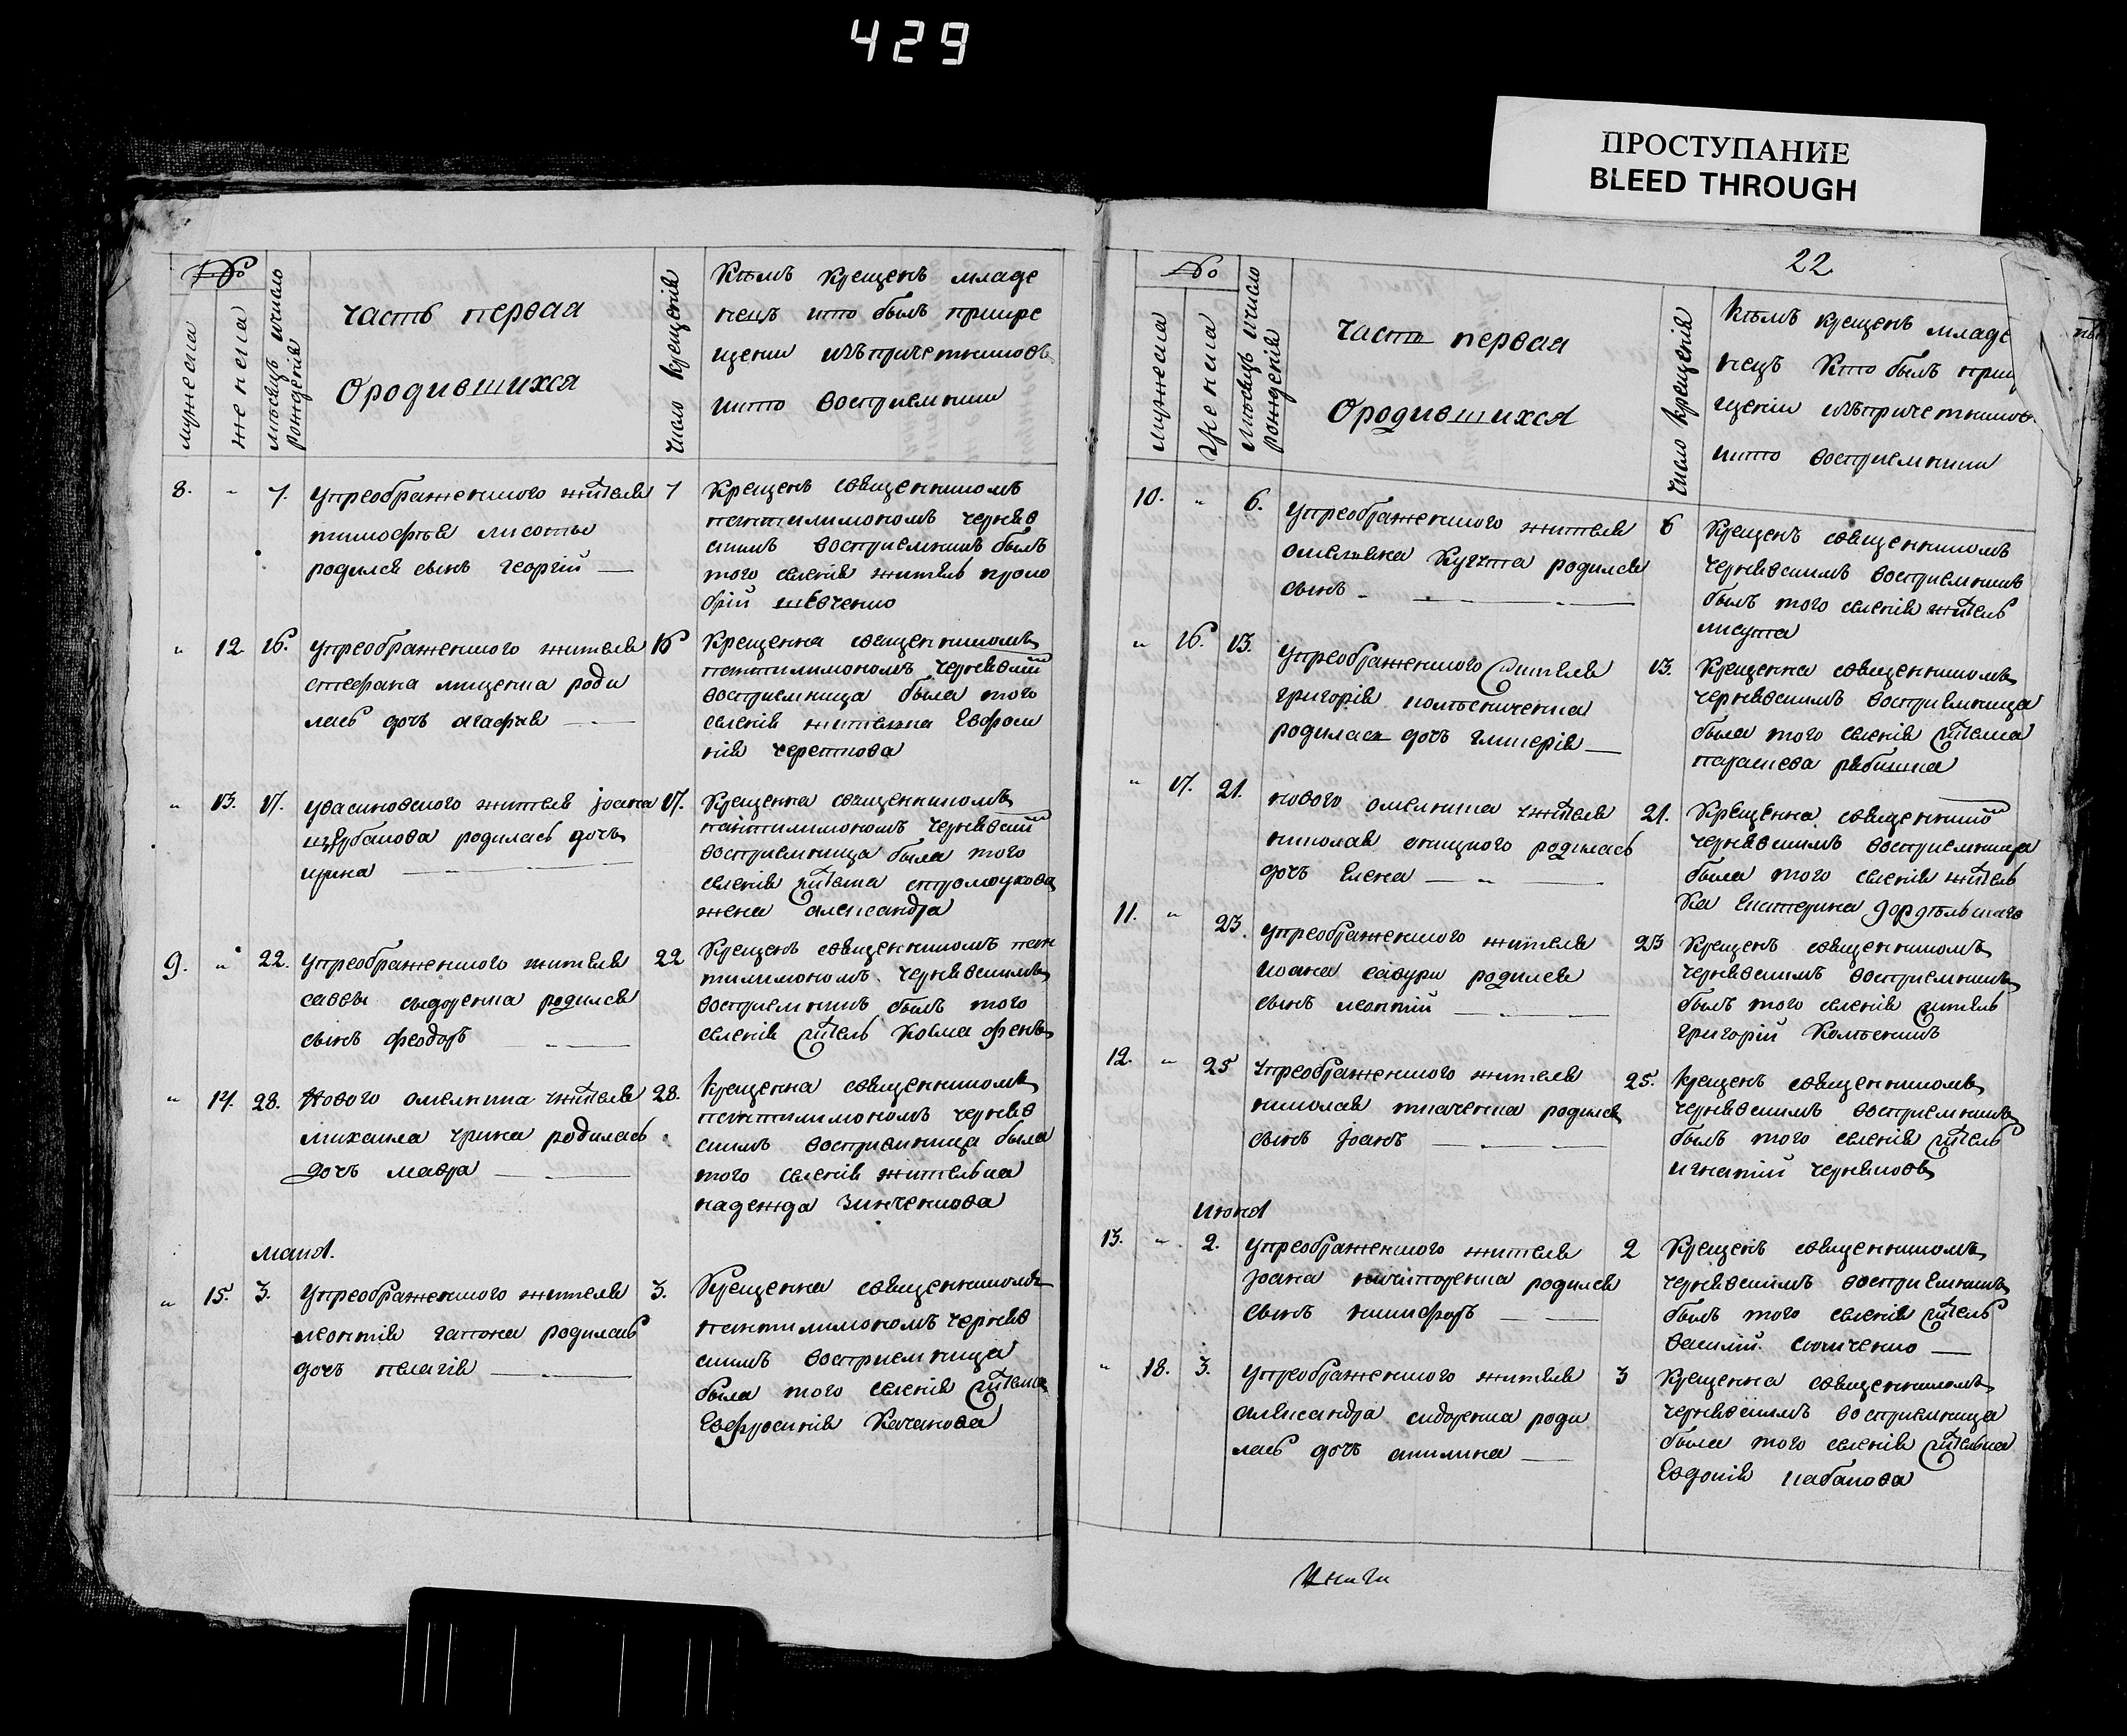 429
ПРОСТУПАНИЕ
BLEED THROUGH
№
мужеска
женска
месяцъ ичисло
рожденія
часть первая
Ородившихся
число крещенія
Кѣмъ крещенъ младе
нецъ кто былъ прикре
щении изъпричетниковъ
икто восприемники
8. " 7. упреображенкого жителя 7
тимофѣя лисоты
родился сынъ георгій —
Крещенъ священникомъ
пантилимономъ черняв
скимъ восприемникъ былъ
того селенія житель проко
фій шевченко
" 12 16. упреображенкого жителя 16
стефана лищенка роди
лась дочь агафия —
Крещенна священникомъ
пантилимономъ чернявский
восприемница была того
селенія жителка Евфоси
нія черепкова
" 13. 17. увасиновского жителя Іоана 17.
щербакова родилась дочь
ирина —
Крещенна священникомъ
пантилимономъ чернявский
восприемница была того
селенія жителка
жена александра
9. " 22. упреображенкого жителя 22
саввы сидоренка родился
сынъ феодоръ —
Крещенъ священникомъ пан
тилимономъ чернявскимъ
восприемникъ былъ того
селенія житель Косма
" 14. 28. Нового омелника жителя 28.
михаила чрика родилась
дочъ мавра —
Крещенна священникомъ
пантилимономъ черняв
скимъ восприемница была
того селенія жителька
надежда Зинченкова
маия.
" 15. 3. Упреображенкого жителя 3.
леонтия гапона родилась
дочъ пелагія —
Крещенна священникомъ
пантилимономъ черняв
скимъ восприемница
была того селенія жителка
Евфросинія Качанова
22
№
мужеска
Женска
месяцъ ичисло
рожденія
Часть первая
Ородившихся
число крещенія
Кѣмъ крещенъ младе
нецъ Кто былъ при
щеніи изъпричетников
икто восприемники
10. " 6. упреображенкого жителя 6
омеляна Кучма родился
сынъ —
Крещенъ священникомъ
чернявскимъ восприемникъ
былъ того селенія житель
лисупа
" 16. 13. упреображенкого жителя 13.
григорія колѣсниченка
родилася дочъ гликерія —
Крещенна священникомъ
чернявскимъ восприемница
была того селенія жителка
параскева рябишка
" 17. 21. нового омелника жителя 21.
николая родилась
дочъ Елена —
Крещенна священникомъ
чернявскимъ восприемница
была того селенія житель
ка Екатерина
11. " 23. упреображенкого жителя 23
иоана савури родился
сынъ леонтій —
Крещенъ священникомъ
чернявскимъ восприемникъ
былъ того селенія житель
григорій Колѣсникъ
12. " 25 упреображенкого жителя 25.
николая ткаченка родился
сынъ Іоанъ —
Крещенъ священникомъ
чернявскимъ восприемникъ
былъ того селенія житель
игнатий черняковъ
июня
13. " 2. упреображенкого жителя 2
Іоана никифоренка родился
сынъ никифоръ —
Крещенъ священникомъ
чернявскимъ восприемникъ
былъ того селенія житель
василий —
" 18. 3. упреображенкого жителя 3
александра сидоренка роди
лась дочъ акилина —
Крещенна священникомъ
чернявскимъ восприемница
была того селенія жителька
Евдокия кабакова
Книги